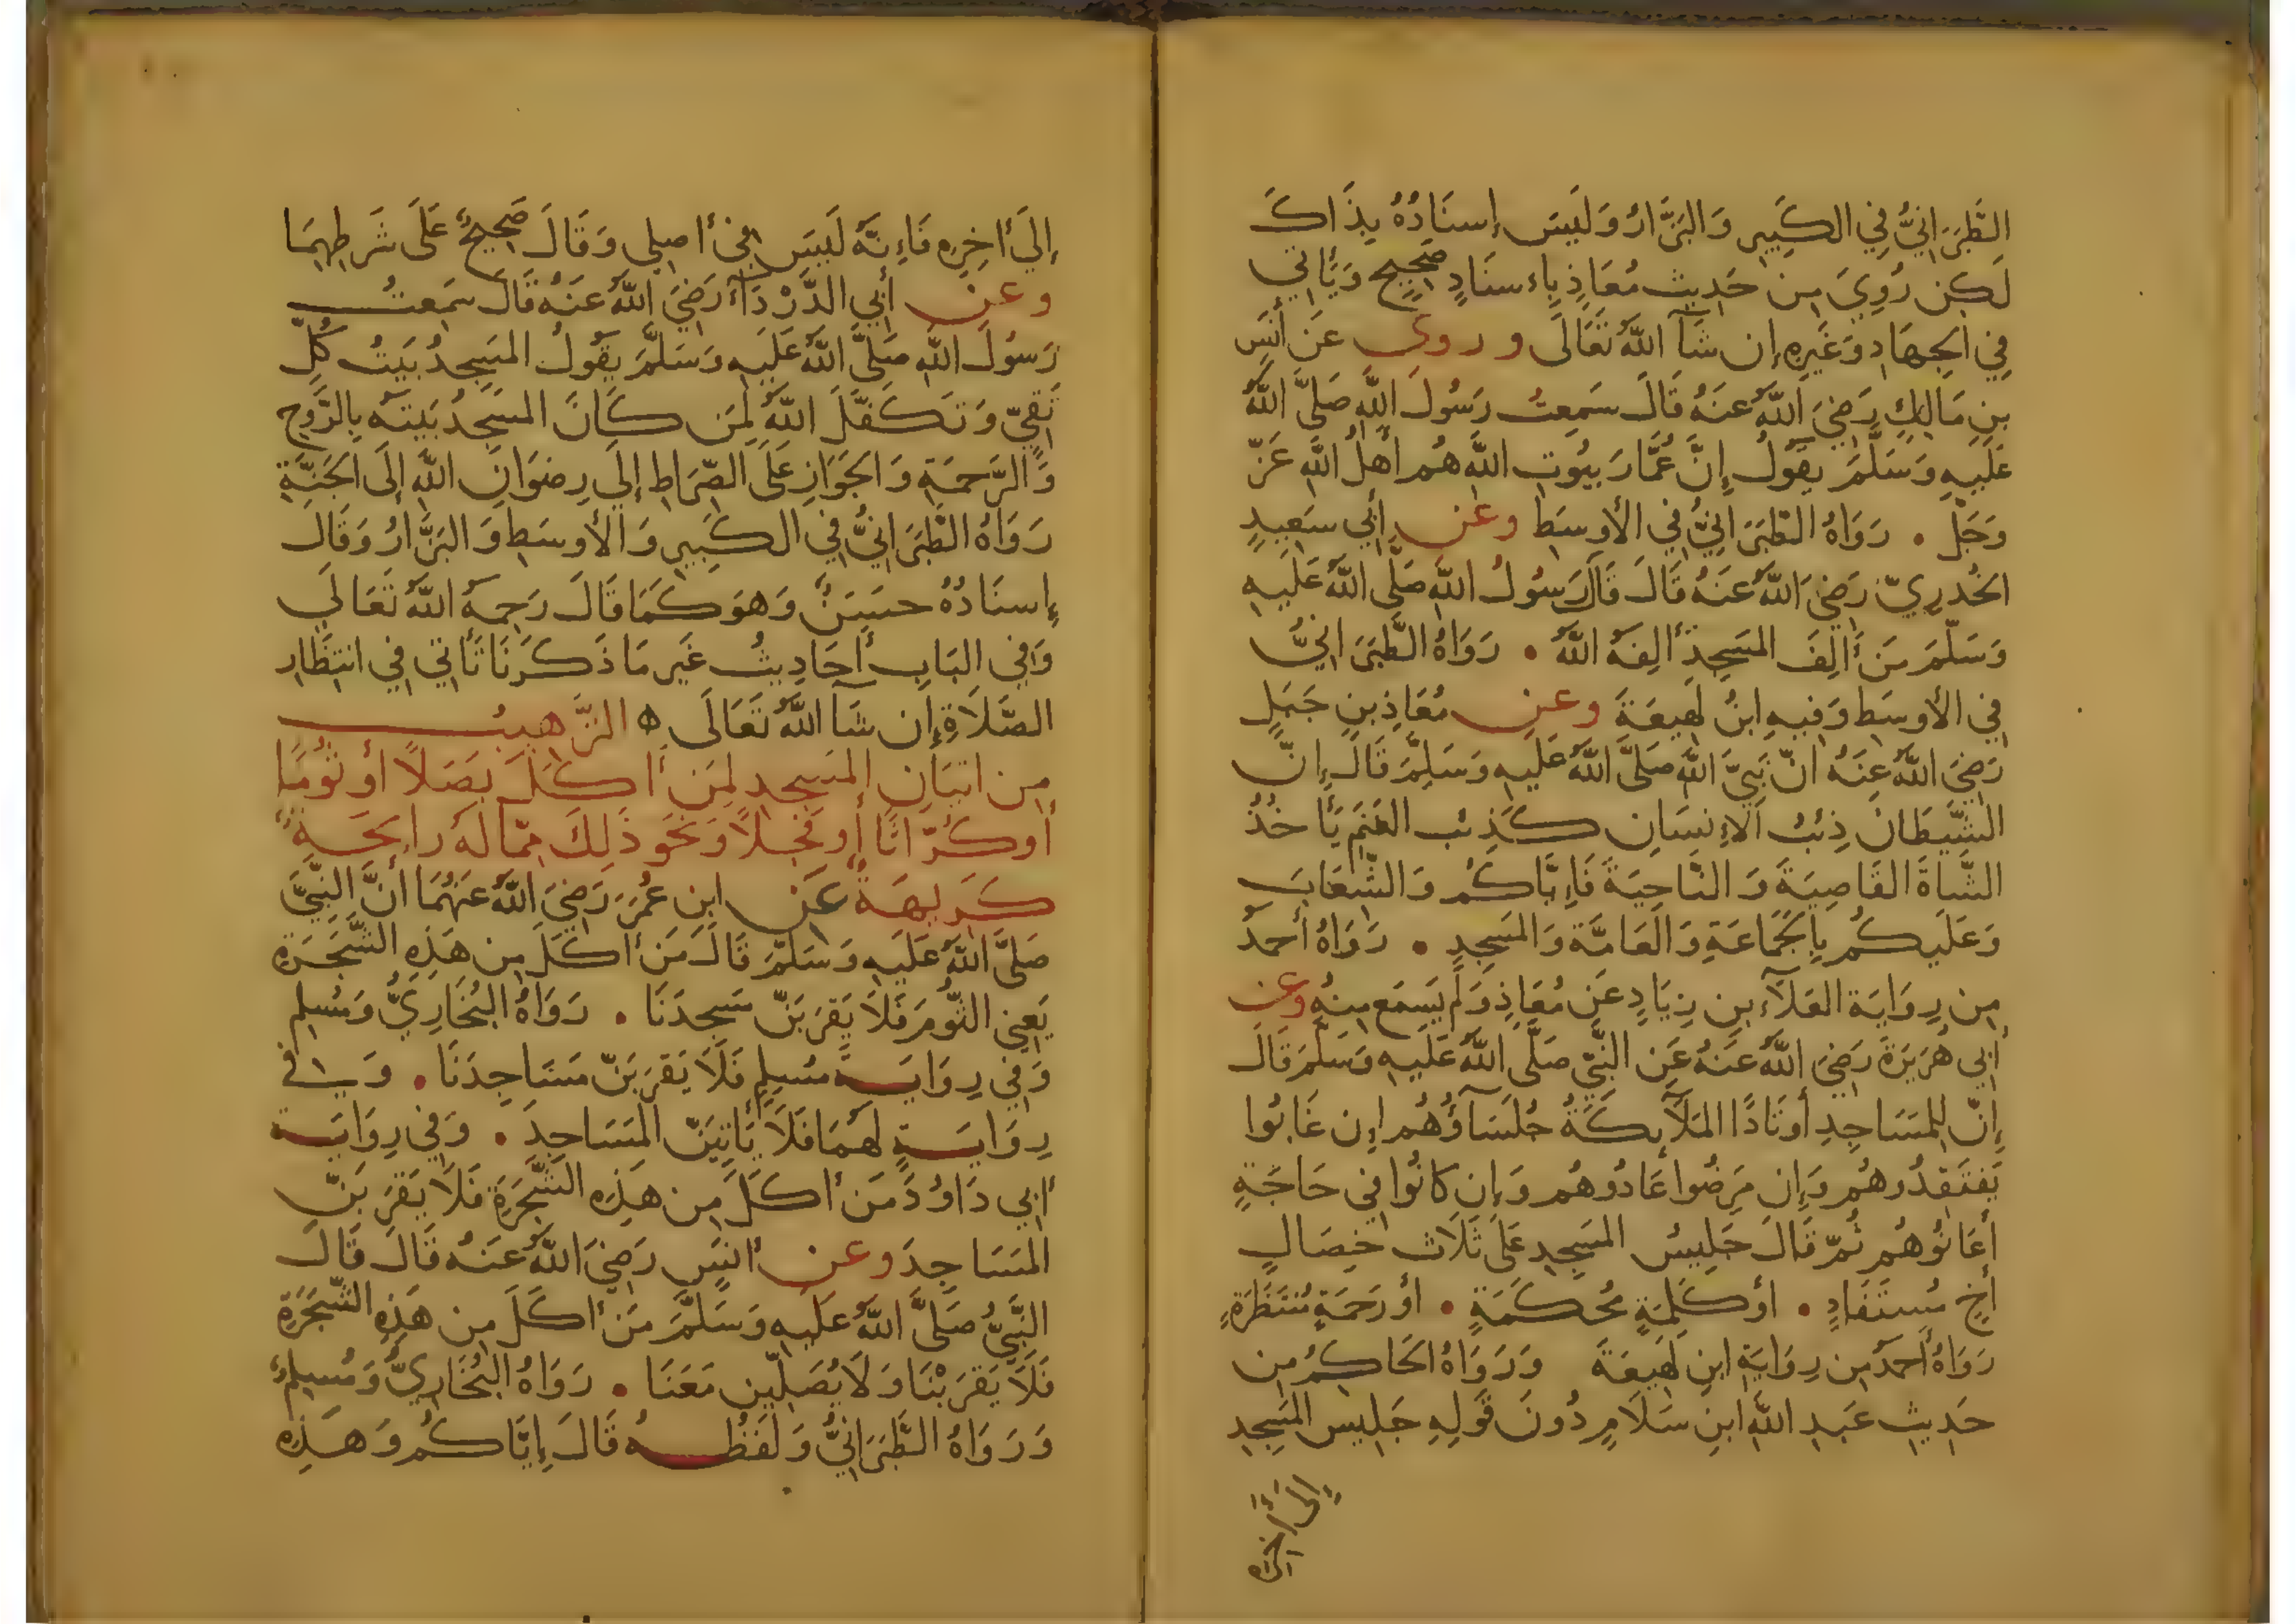 الطَّبَرَانِيُّ فِي الكَبِيرِ وَالبَزَّارُ وَلَيسَ إِسنَادُهُ بِذَاكَ
لَكِن رُوِيَ مِن حَدِيث مُعَاذٍ بِإِسنَادٍ صَحِيحٍ وَيَأتِي
فِي الجِهَادِ وَغَيرِهِ إِن شَآ اللَّهُ تَعَالَى وروى عَن أَنَسِ
بنِ مَالِكٍ رَضِيَ اللَّهُ عَنهُ قَالَ سَمِعتُ رَسُولَ اللَّهِ صَلَّى اللَّهُ
عَلَيهِ وَسَلَّمَ يَقُولُ إِنَّ عُمَّارَ بيُوتِ اللَّهِ هُم أَهلُ اللَّهِ عَزَّ
وَجَلَّ • رَوَاهُ الطَّبَرَانِيُّ فِي الأَوسَطِ وعن أَبِي سَعِيدٍ
الخُدرِيِّ رَضِيَ اللَّهُ عَنهُ قَالَ قَالَ رَسُولُ اللَّهِ صَلَّى اللَّهُ عَلَيهِ
وَسَلَّمَ مَن أَلِفَ المَسجِدَ أَلِفَهُ اللَّهُ • رَوَاهُ الطَّبَرَانِيُّ
فِي الأَوسَطِ وَفِيهِ ابنُ لَهِيعَةَ وعن مُعَاذِ بنِ جَبَلٍ
رَضِيَ اللَّهُ عَنهُ أنَّ نَبِيَّ اللَّهِ صَلَّى اللَّهُ عَلَيهِ وَسَلَّمَ قَالَ إِنَّ
الشَّيطَانَ ذِئبُ الإِنسَانِ كَذِئبِ الغَنَمِ يَأخُذُ
الشَّاةَ القَاصِيَةَ وَالنَّاحِيَةَ فَإِيَّاكُم وَالشِّعَابَ
وَعَلَيكُم بِالجَمَاعَةِ وَالعَامَّةِ وَالمَسجِدِ • رَوَاهُ أَحمَدُ
مِن رِوَايَةِ العَلَآءِ بنِ زِيَادٍ عَن مُعَاذٍ وَلَم يَسمَع مِنهُ وعن
أَبِي هُرَيرَةَ رَضِيَ اللَّهُ عَنهُ عَنِ النَّبِيِّ صَلَّى اللَّهُ عَلَيهِ وَسَلَّمَ قَالَ
إِنَّ لِلمَسَاجِدِ أَوتَادًا المَلَآئِكَةُ جُلَسَآؤُهُم إِن غَابُوا
يَفتَقِدُوهُم وَإِن مَرِضُوا عَادُوهُم وَإِن كَانُوا فِي حَاجَةٍ
أَعَانُوهُم ثُمَّ قَالَ جَلِيسُ المَسجِدِ عَلَى ثَلَاثِ خِصَالٍ
أَخٍ مُستَفَادٍ • أَو كَلِمَةٍ مُحكَمَةٍ • أَو رَحمَةٍ مُنتَظَرَةٍ
رَوَاهُ أَحمَدُ مِن رِوَايَةِ ابنِ لَهِيعَةَ وَرَوَاهُ الحَاكِمُ مِن
حَدِيثِ عَبدِ اللَّهِ ابنِ سَلَامٍ دُونَ قَولِهِ جَلِيسُ المَسجِدِ
إِلَى أَخِرِهِ
إِلَى أَخِرِهِ فَإِنَّهُ لَيسَ فِي أَصلِي وَقَالَ صَحِيحٌ عَلَى شَرطِهِمَا
وعن أَبِي الدَّرْدَآءِ رَضِيَ اللَّهُ عَنهُ قَالَ سَمِعتُ
رَسُولَ اللَّهِ صَلَّى اللَّهُ عَلَيهِ وَسَلَّمَ يَقُولُ المَسجِدُ بَيتُ كُلِّ
تَقِيٍّ وَتَكَفَّلَ اللَّهُ لِمَن كَانَ المَسجِدُ بَيتَهُ بِالرَّوحِ
وَالرَّحمَةِ وَالجَوَازِ عَلَى الصِّرَاطِ إِلَى رِضوَانِ اللَّهِ إِلَى الجَنَّةِ
رَوَاهُ الطَّبَرَانِيُّ فِي الكَبِيرِ وَالأَوسَطِ وَالبَزَّارُ وَقَالَ
إِسنَادُهُ حسَنٌ وَهوَ كَمَا قَالَ رَحِمَهُ اللَّهُ تَعَالَى
وَفِي البَابِ أَحَادِيثُ غَير مَا ذَكَرنَا تَأتِي فِي انتِظَارِ
الصَّلَاةِ إِن شَآ اللَّهُ تَعَالَى ۞ الترهيب
مِن اتيَانِ المَسجِدِ لِمَن أَكَلَ بَصَلًا أَو ثُومًا
أَو كُرَّاثًا أَو فِجلًا وَنَحوَ ذَلِكَ مِمَّا لَهُ رايحَةٌ
كَرِيهَةٌ عَنِ ابنِ عُمَرَ رَضِيَ اللَّهُ عَنهُمَا أَنَّ النَّبِيَّ
صَلَّى اللَّهُ عَلَيهِ وَسَلَّمَ قَالَ مَن أَكَلَ مِن هَذِهِ الشَّجَرَةِ
يَعنِي الثُّومَ فَلَا يَقرَبَنَّ مَسجِدَنَا • رَوَاهُ البُخَارِيُّ وَمُسلِم
وَفِي رِوَايَةِ مُسلِمٍ فَلَا يَقرَبَنَّ مَسَاجِدَنَا • وَفِي
رِوَايَةٍ لَهُمَا فَلَا يَأتِيَنَّ المَسَاجِدَ • وَفِي رِوَايَةِ
أَبِي دَاوُدَ مَن أَكَلَ مِن هَذِهِ الشَّجَرَةِ فَلَا يَقرَبَنَّ
المَسَاجِدَ وعن أَنَسٍ رَضِيَ اللَّهُ عَنهُ قَالَ قَالَ
النَّبِيُّ صَلَّى اللَّهُ عَلَيهِ وَسَلَّمَ مَن أَكَلَ مِن هَذِهِ الشَّجَرَةِ
فَلَا يَقرَبْنَا وَلَا يُصَلِّيَن مَعَنَا • رَوَاهُ البُخَارِيُّ وَمُسلِمٌ
وَرَوَاهُ الطَّبَرَانِيُّ وَلَفظُهُ قَالَ إِيَّاكُم وَهَذِهِ